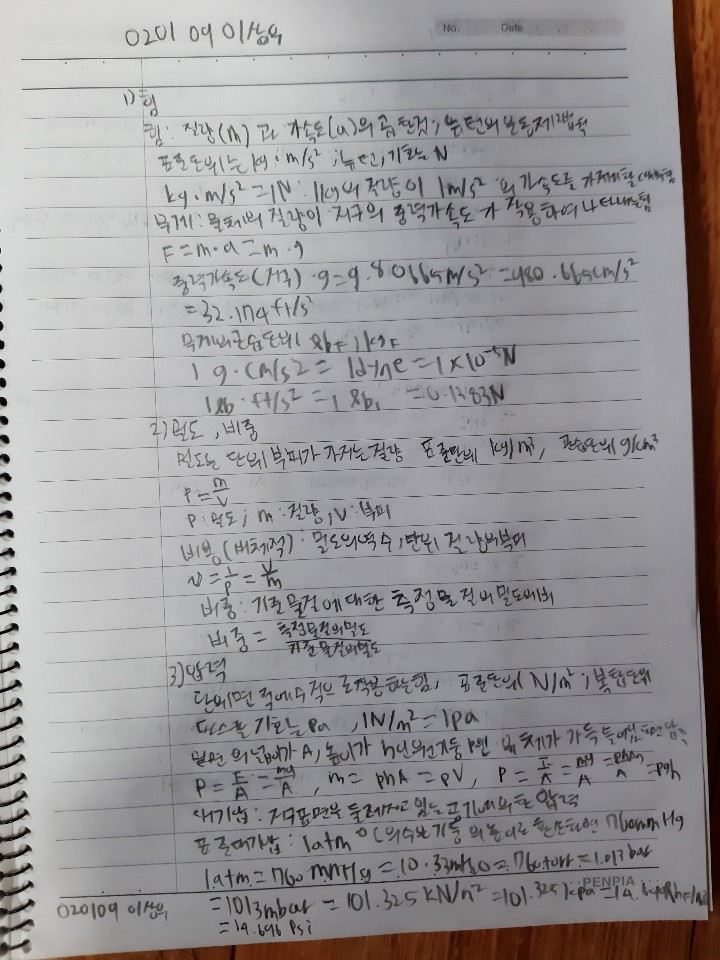 0201 09 이상욱
No. Date
1) 힘
힘: 질량(m)과 가속도(a)의 곱한것; 뉴턴의 운동제2법칙
표준단위는 kg·m/s² ; 뉴턴, 기호는 N
kg·m/s² = 1N : 1kg의 질량이 1m/s²의 가속도를
무게: 물체의 질량이 지구의 중력가속도가 작용하여 나타내는힘
F = m·a = m·g
중력가속도(지구)·g = 9.80665m/s² = 980.665cm/s²
= 32.174ft/s²
무게의관습단위 lb_F ; kg_F
1 g·cm/s2 = 1dyne = 1×10⁻⁵N
1 lb·ft/s² = 1 = 0.1383N
2) 밀도, 비중
밀도는 단위부피가 가지는질량 표준단위 kg/m³, 관습단위 g/cm³
ρ = m/V
ρ: 밀도; m: 질량, V: 부피
비용(비체적): 밀도의역수, 단위 질량의부피
ν = 1/ρ = V/m
비중: 기준물질에대한 측정물질의밀도의비
비중 = 측정물질의밀도/기준물질의밀도
3) 압력
단위면적에수직으로작용하는힘, 표준단위 N/m² ; 복합단위
파스칼 기호는 Pa, 1N/m² = 1pa
밑면의넓이가 A, 높이가 h인 유체가 가득
P = F/A = mg/A, m = ρhA = ρV, P = F/A = mg/A = ρhAg/A = ρgh
대기압: 지구표면을 둘러싸고 있는 공기에의한 압력
표준대기압: 1atm 0℃의수은기둥의높이로 환산하면 760mmHg
1atm = 760 mmHg = 10.33mH₂O = 760torr = 1.013bar
PENPIA
020109 이상욱 = 1013mbar = 101.325 KN/m² = 101.325 kpa
= 14.696 Psi